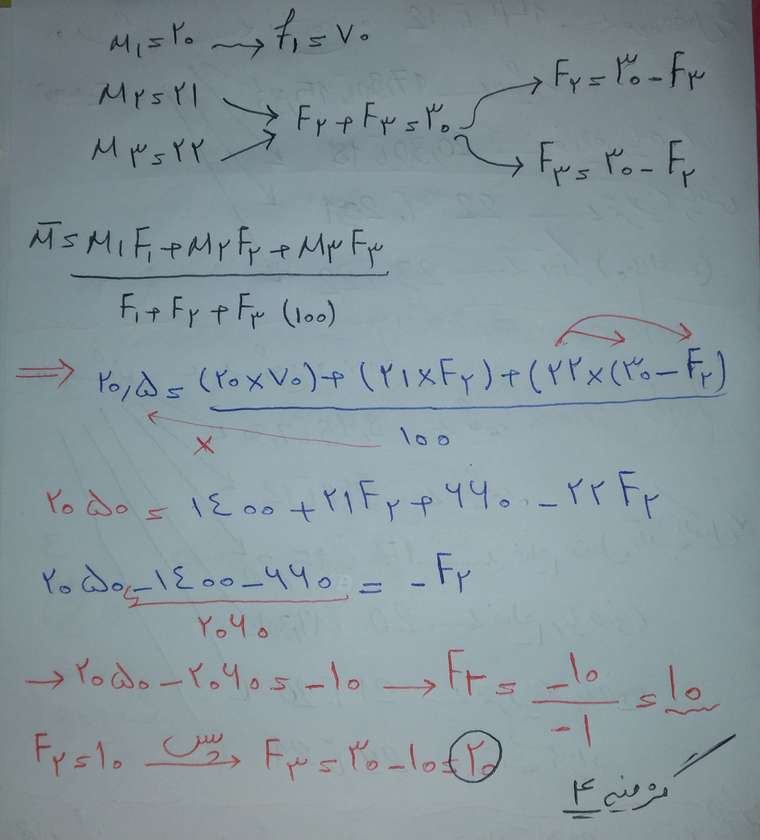 M₁ = ۲۰ → f₁ = ۷۰
M۲ = ۲۱
M۳ = ۲۲
F۲ + F۳ = ۳۰
F۲ = ۳۰ - F۳
F۳ = ۳۰ - F۲
M̄ = M₁F₁ + M۲F۲ + M۳F۳
F₁ + F۲ + F۳ (۱۰۰)
⇒ ۲۰,۵ = (۲۰×۷۰) + (۲۱×F۲) + (۲۲×(۳۰-F۲)
× ۱۰۰
۲۰۵۰ = ۱۴۰۰ + ۲۱F۲ + ۶۶۰ - ۲۲F۲
۲۰۵۰ - ۱۴۰۰ - ۶۶۰ = -F۲
۲۰۶۰
→ ۲۰۵۰ - ۲۰۶۰ = -۱۰ → F۲ = -۱۰ / -۱ = ۱۰
F۲ = ۱۰ پس → F۳ = ۳۰ - ۱۰ = ۲۰
گزینه ۴